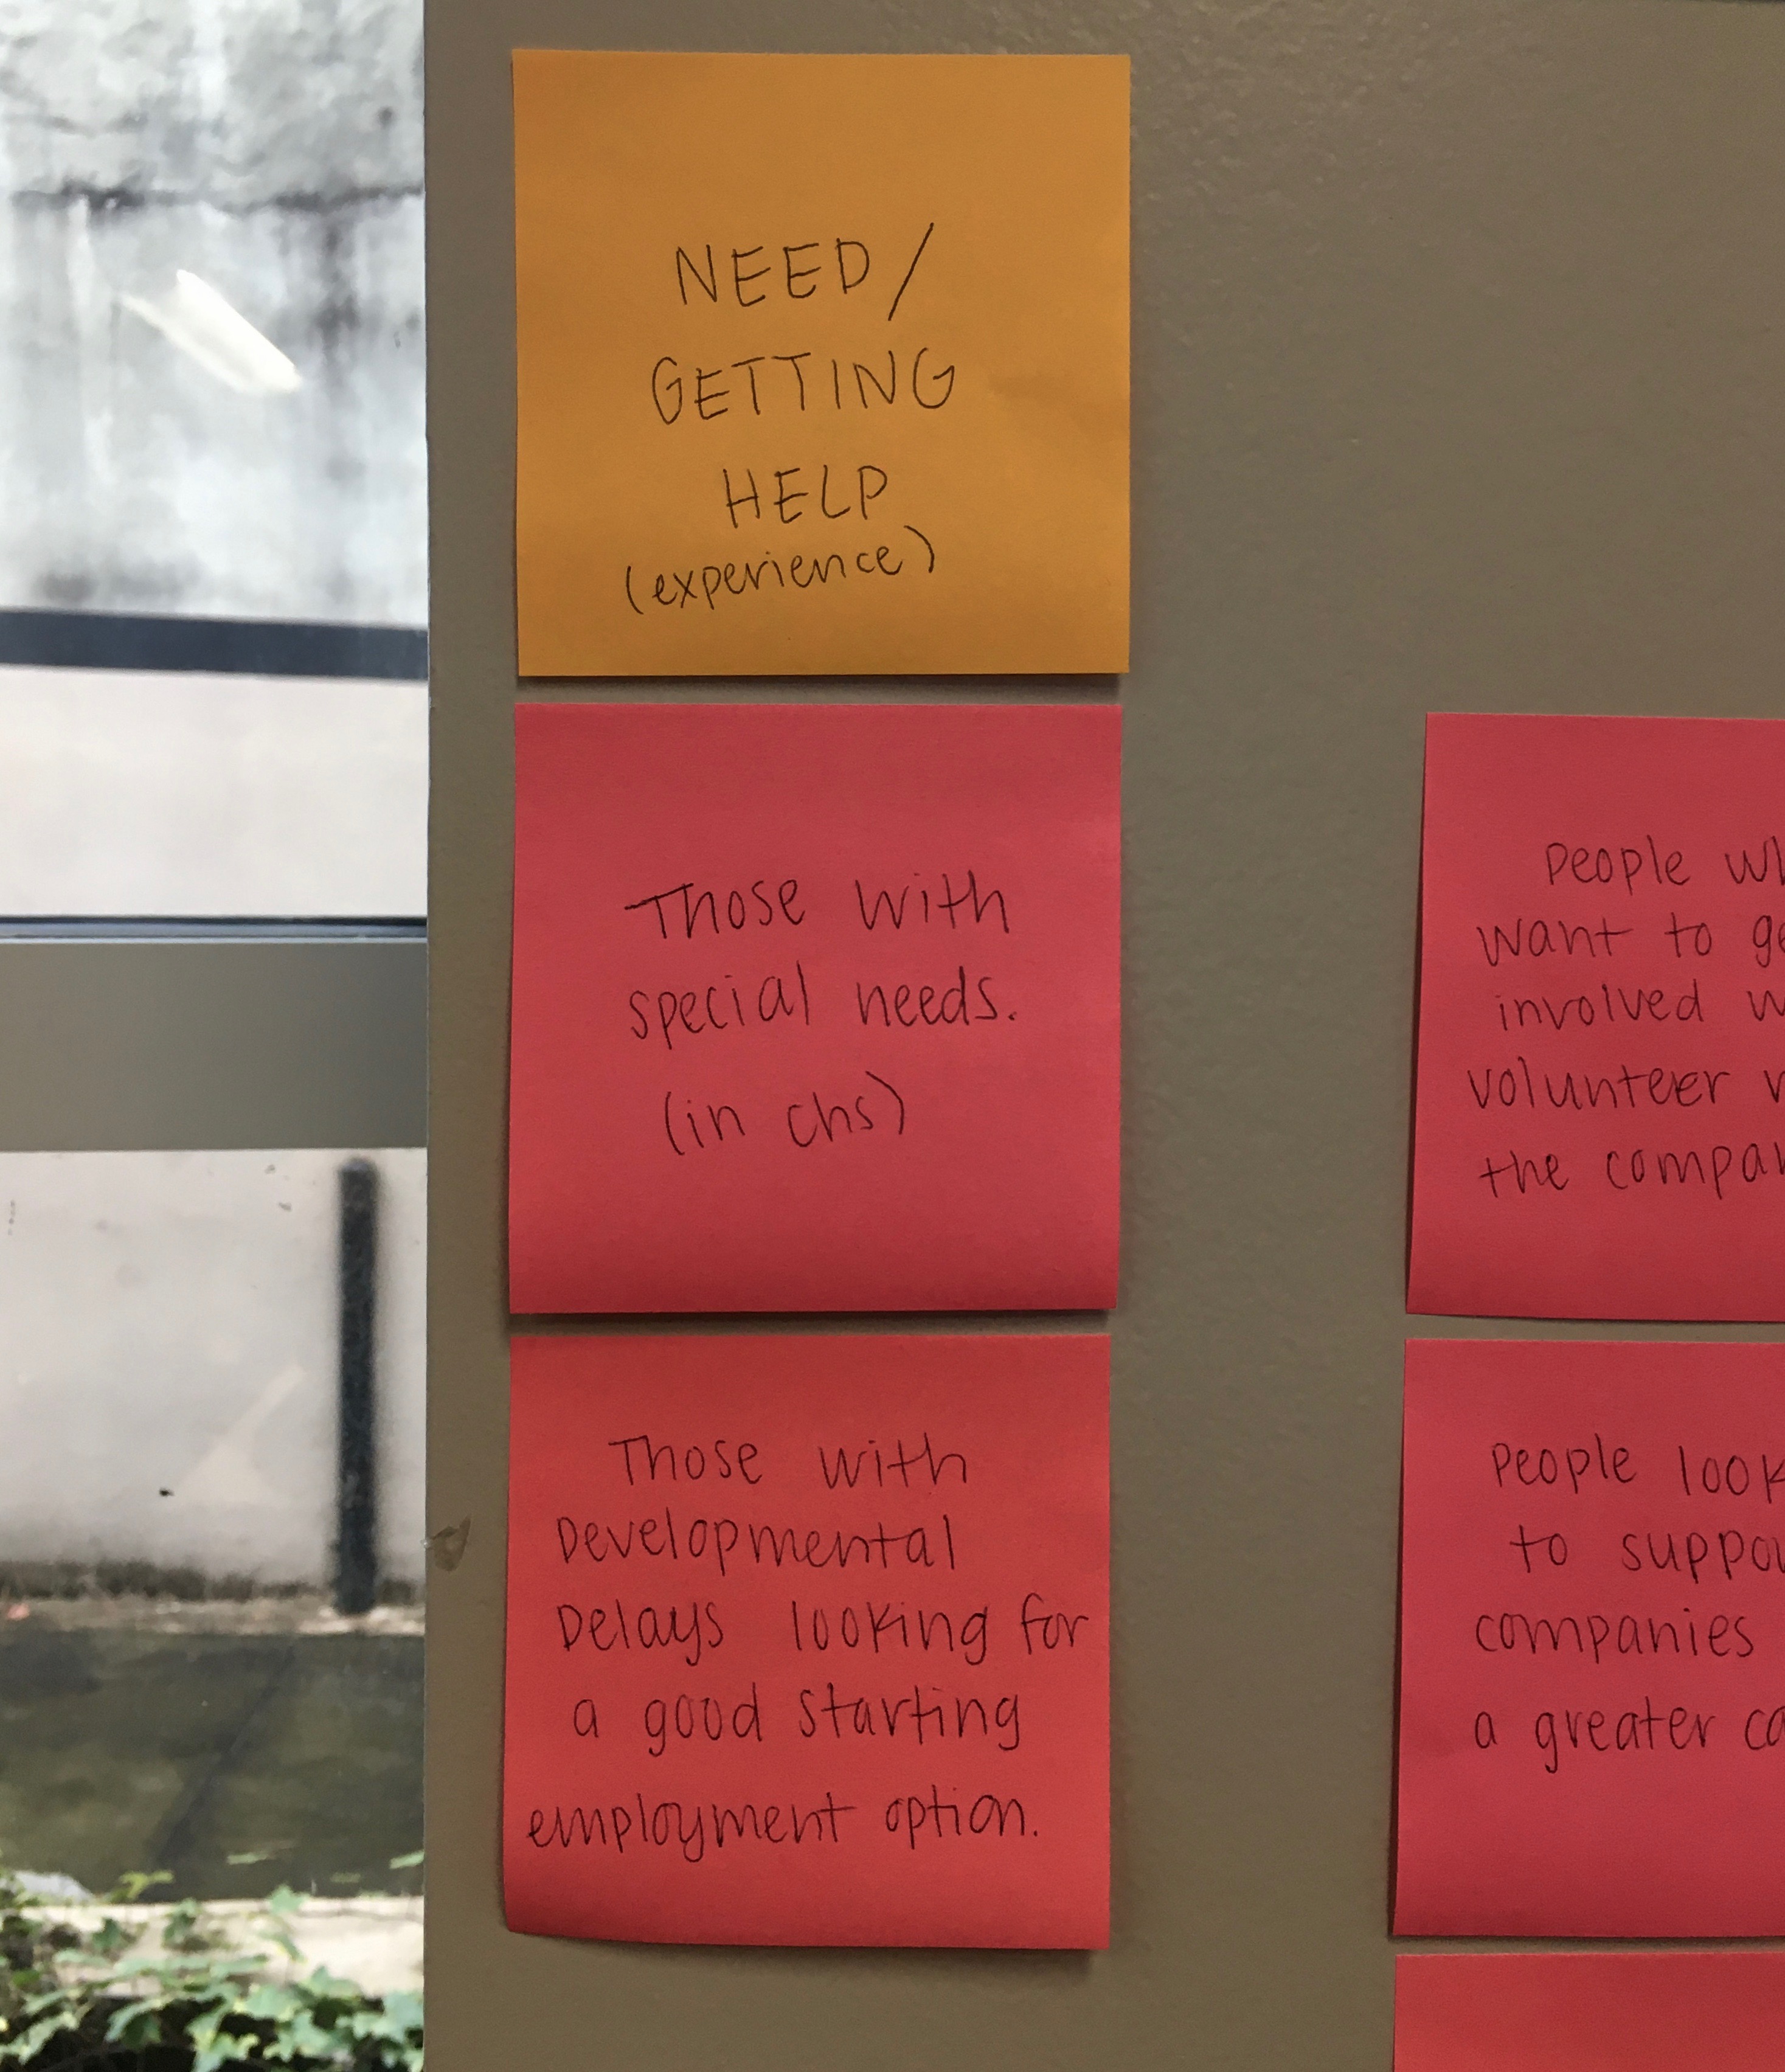 NEED/
GETTING
HELP
(experience)
Those with
special needs.
(in chs)
Those with
Developmental
Delays looking for
a good starting
employment option.
People
want to
involved
volunteer
the
People
to
companies
a greater